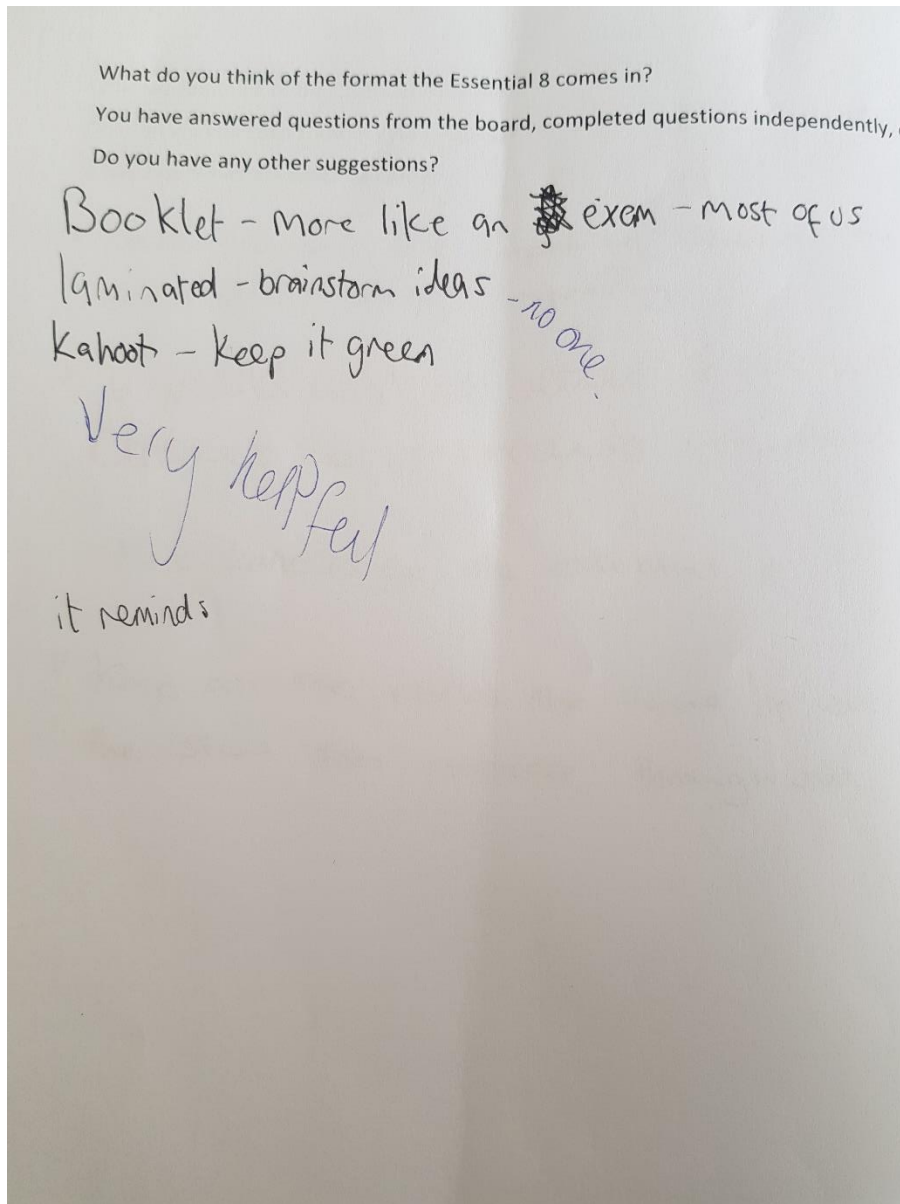 What do you think of the format the Essential 8 comes in?
You have answered questions from the board, completed questions independently,
Do you have any other suggestions?
Booklet - more like an exem - most of us
laminated - brainstorm ideas - no one.
Kahoot - keep it green
Very helpful
it reminds